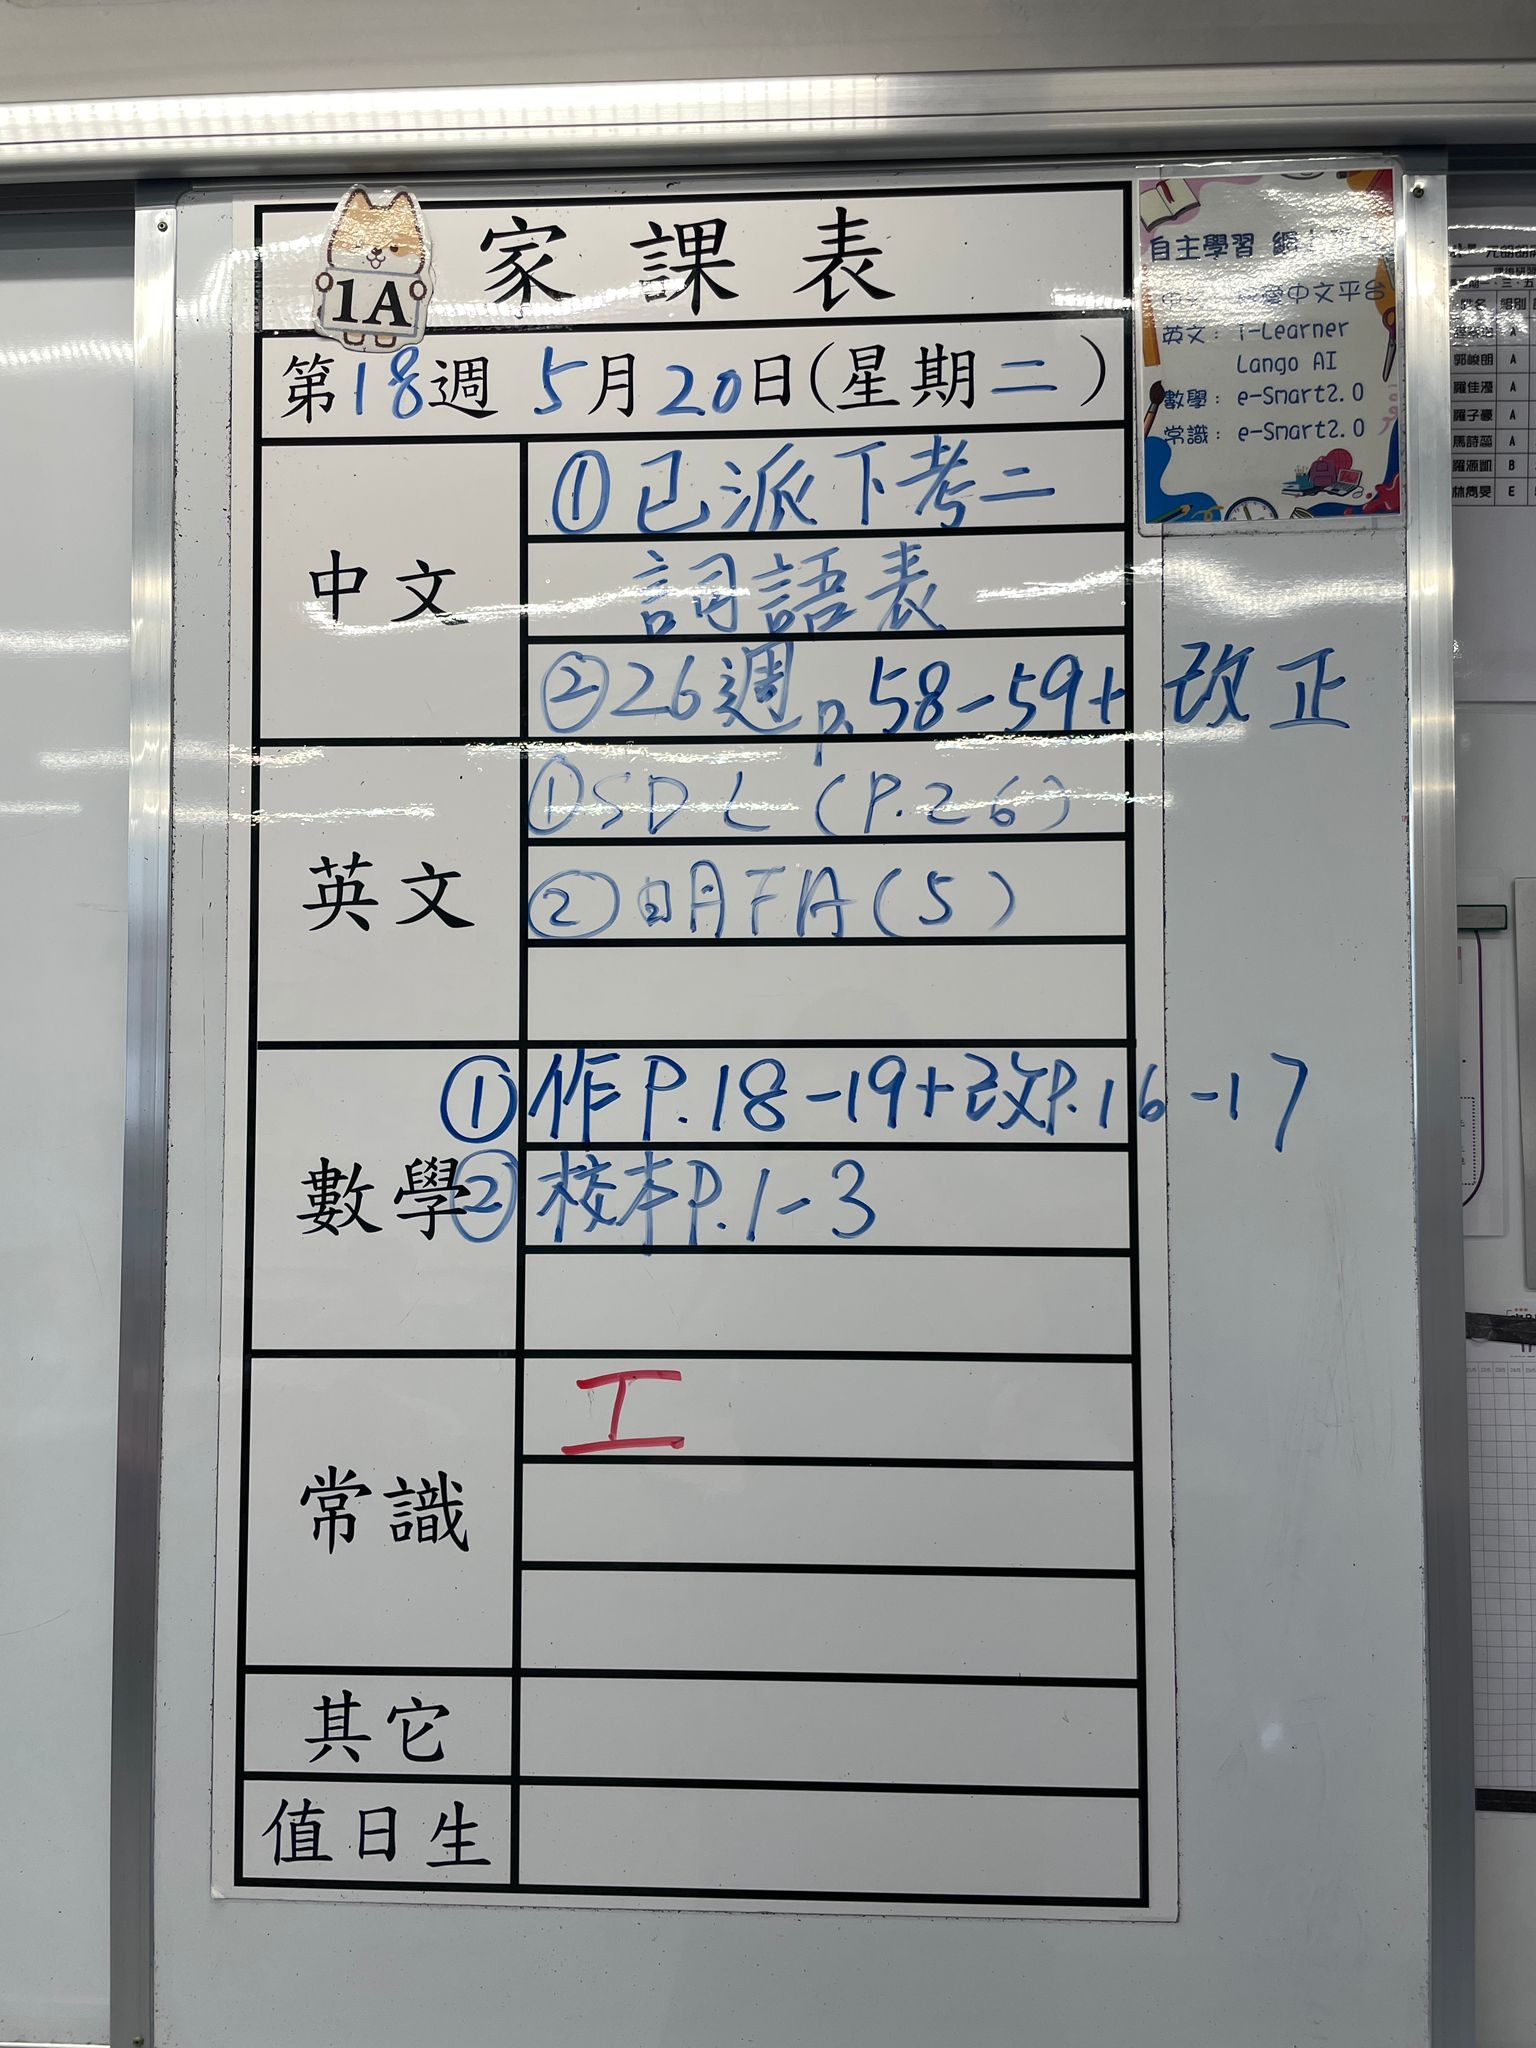 1A
家課表
第18週 5月20日(星期二)
中文
①已派下考二
詞語表
②26週 p.58-59+改正
英文
①SDL (P.26)
②明FA(5)
數學
①作P.18-19+改P.16-17
②校本P.1-3
常識
工
其它
值日生
自主學習 網
中文平台
英文: i-Learner
Lango AI
數學: e-Smart2.0
常識: e-Smart2.0
姓名 組別
郭峻朗 A
羅佳漫 A
羅子豪 A
馬詩蕊 A
B
E